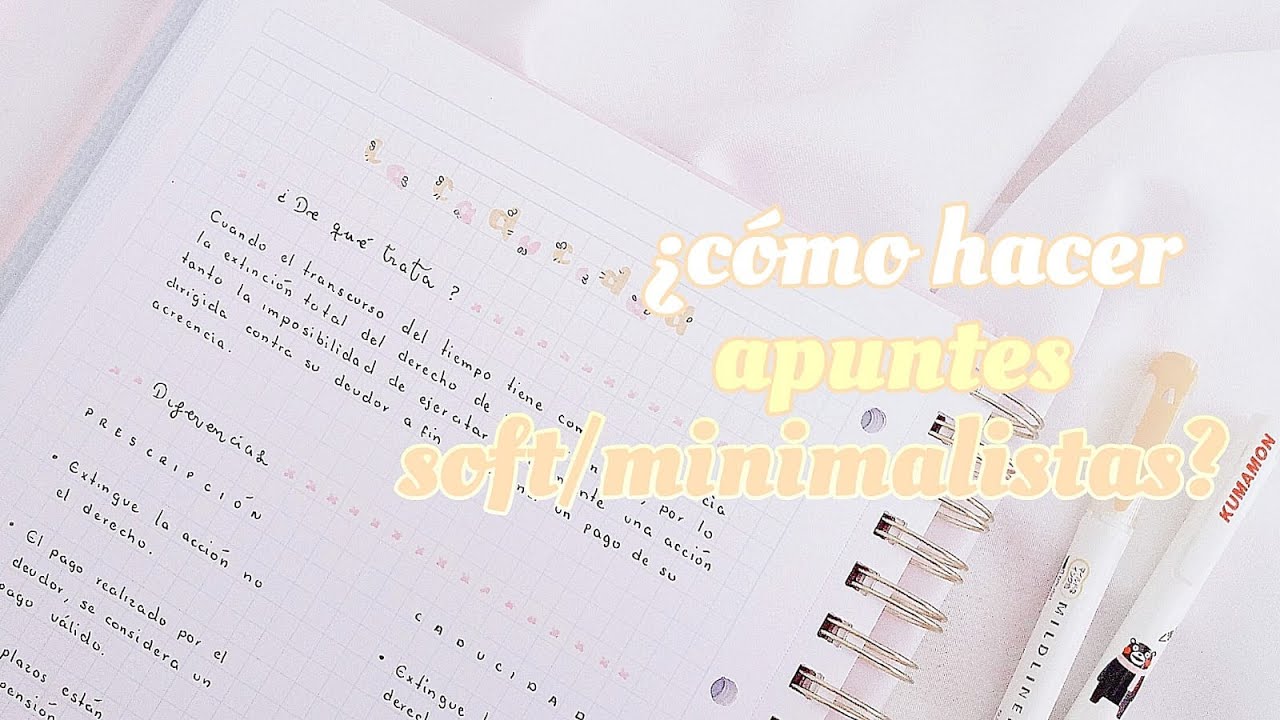 La Caducidad
¿De qué trata?
Cuando el transcurso del tiempo tiene
la extinción total del derecho de por lo
tanto la imposibilidad de ejercitar una acción
dirigida contra su deudor a fin un pago de su
acreencia.
Diferencias
PRESCRIPCIÓN
• Extingue la acción no
el derecho.
• El pago realizado por el
deudor, se considera un
pago válido.
plazos están
CADUCIDAD
• Extingue la
¿cómo hacer
apuntes
soft/minimalistas?
MILDLINER
KUMAMON